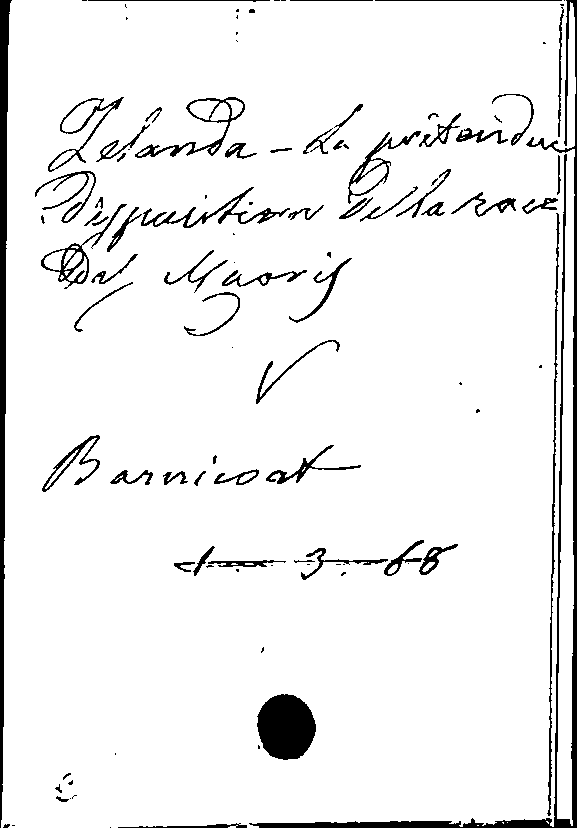 Zelanda - La prétendue
disparition de la race
des Maoris
V
Barnicoat
1 - 3. - 68